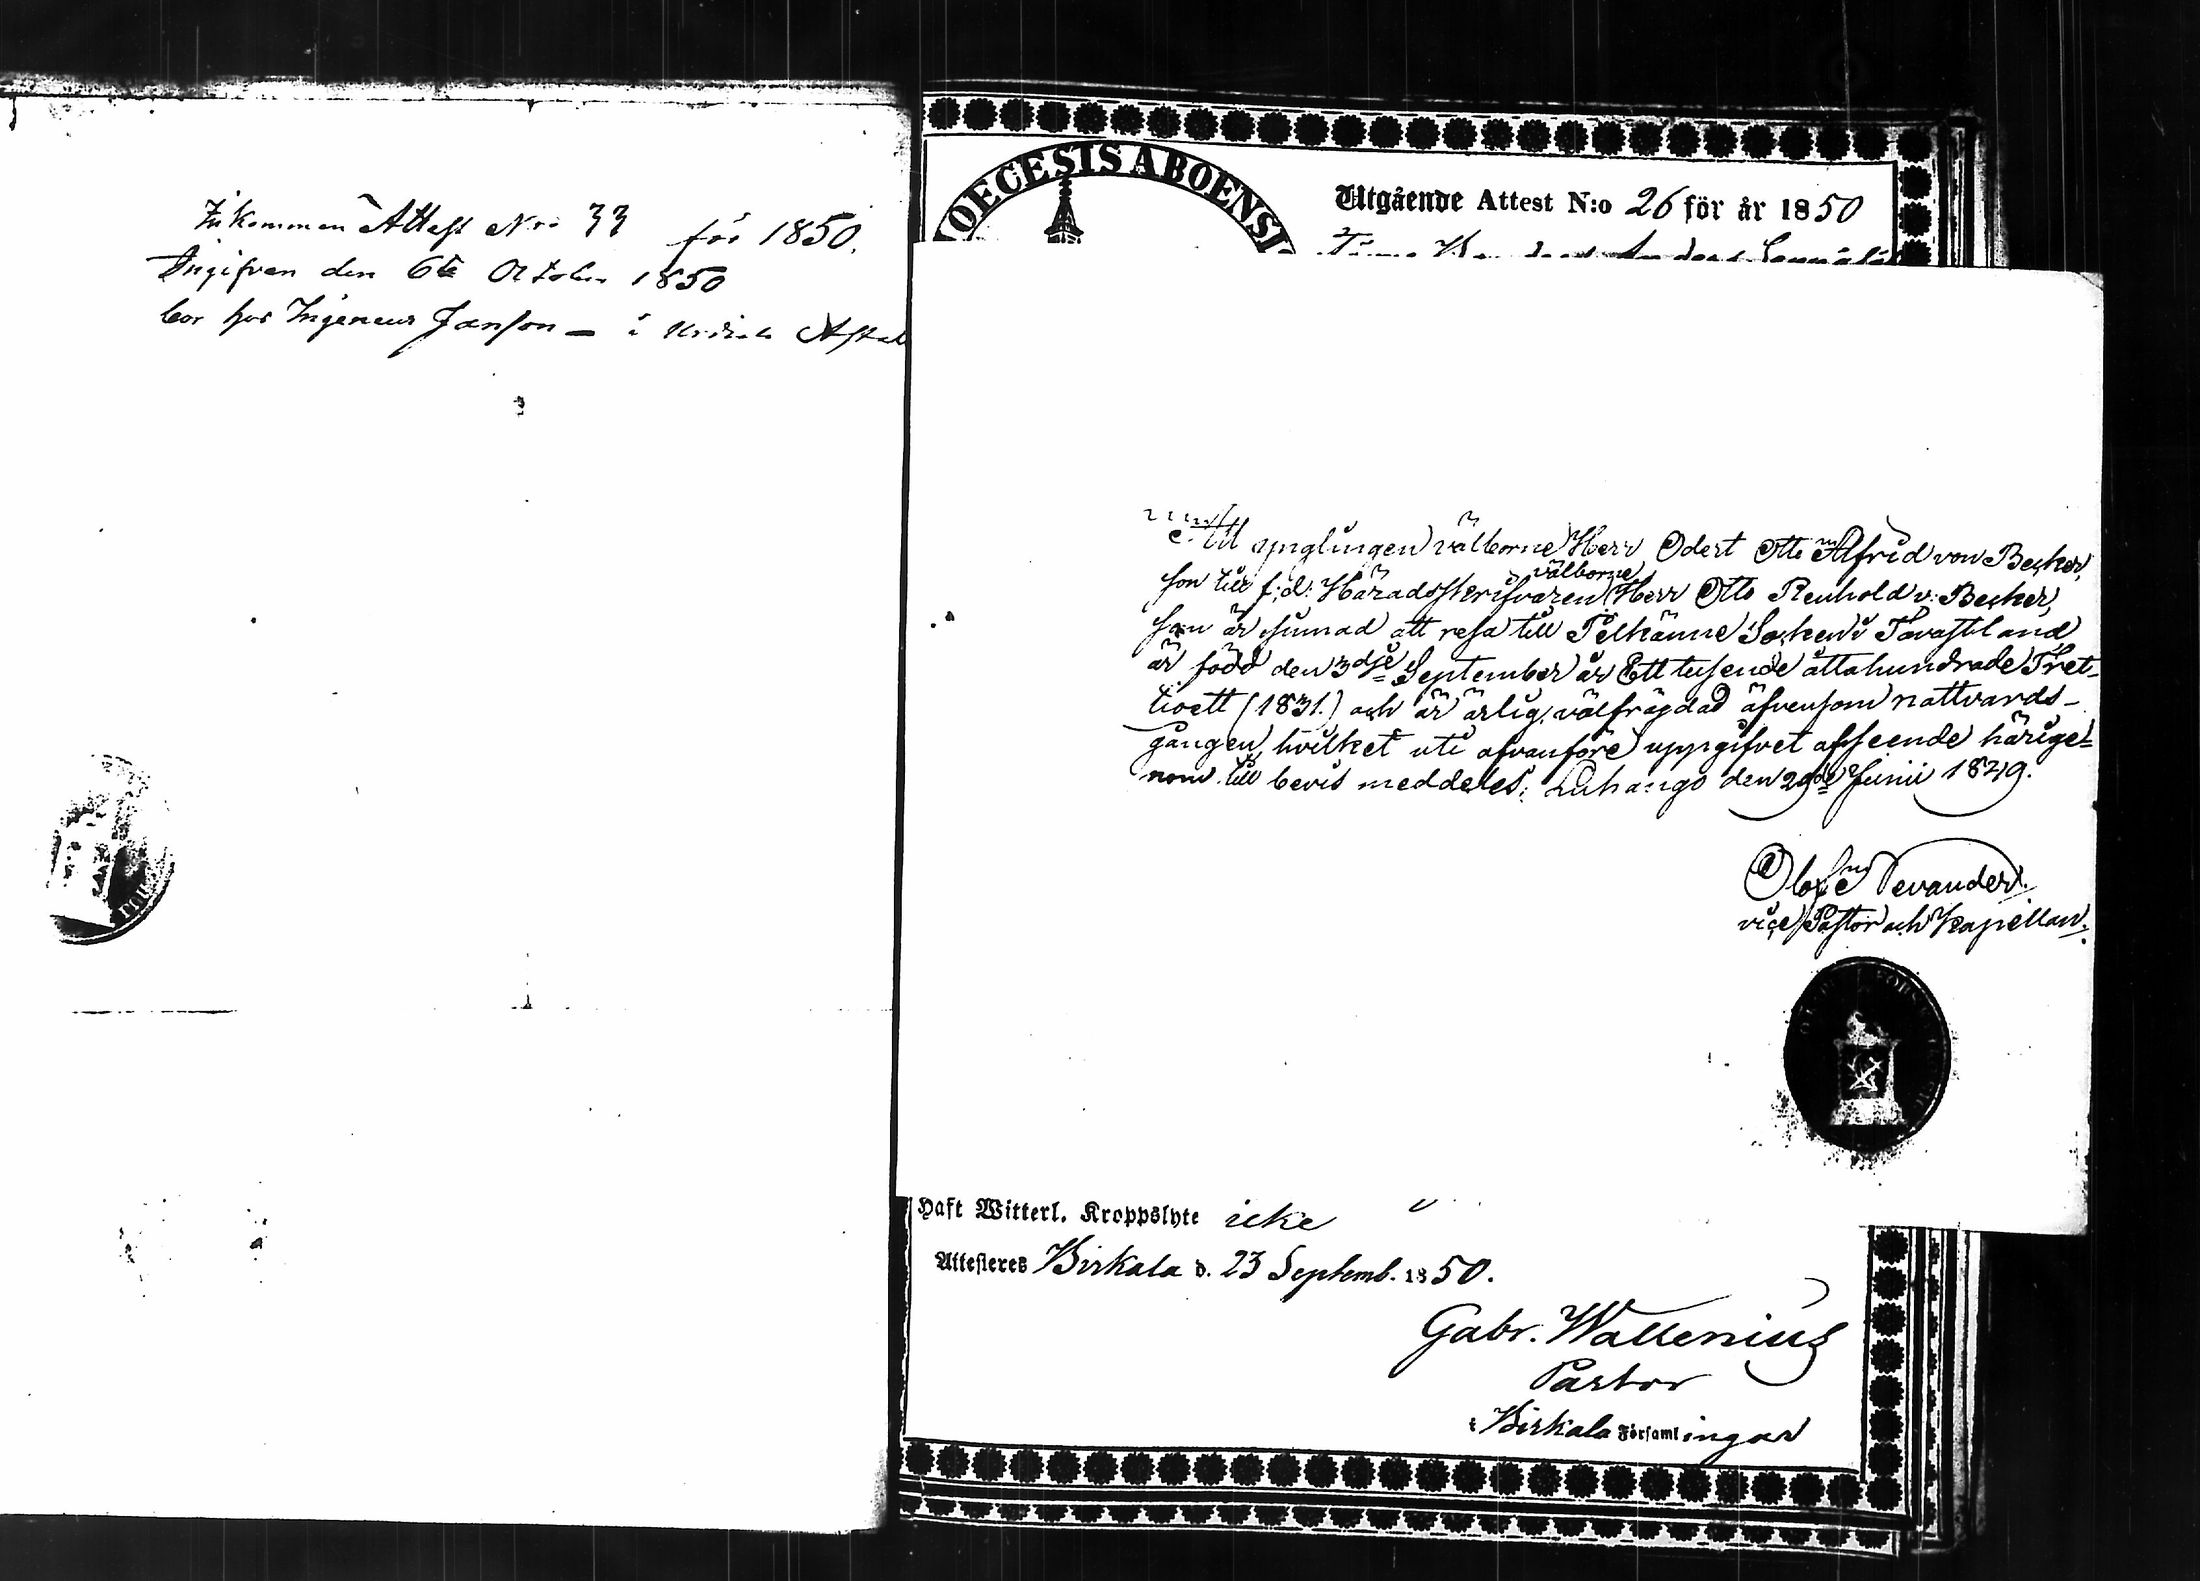 Inkommen Attest Nro 33 för 1850.
Ingifven den 6te October 1850
bor hos Ingeneur Janson – i
OECESIS ABOENSI
Utgående Attest N:o 26 för år 1850
Att ynglingen välborne Herr Edert Otto Alfrid von Becker,
son till f:d: Häradsskrifvaren välborne Herr Otto Reinhold v: Becker,
som är sinnad att resa till Pelkänne Socken i Tavastland
är född den 3dje September år Ett tusende åttahundrade Tret-
tioett (1831.) och är ärlig, välfrägdad äfvensom nattvards-
gången, hvilket uti ofvanföre uppgifvet afseende härige-
nom till bevis meddeles; Luhango den 29de Junii 1849.
Olof Nevander.
vice Pastor och Kapellan.
Haft Witterl. Kroppslyte icke
Attesteres Birkala d. 23 Septemb. 1850.
Gabr. Wallenius
Pastor
i Birkala Församlingar